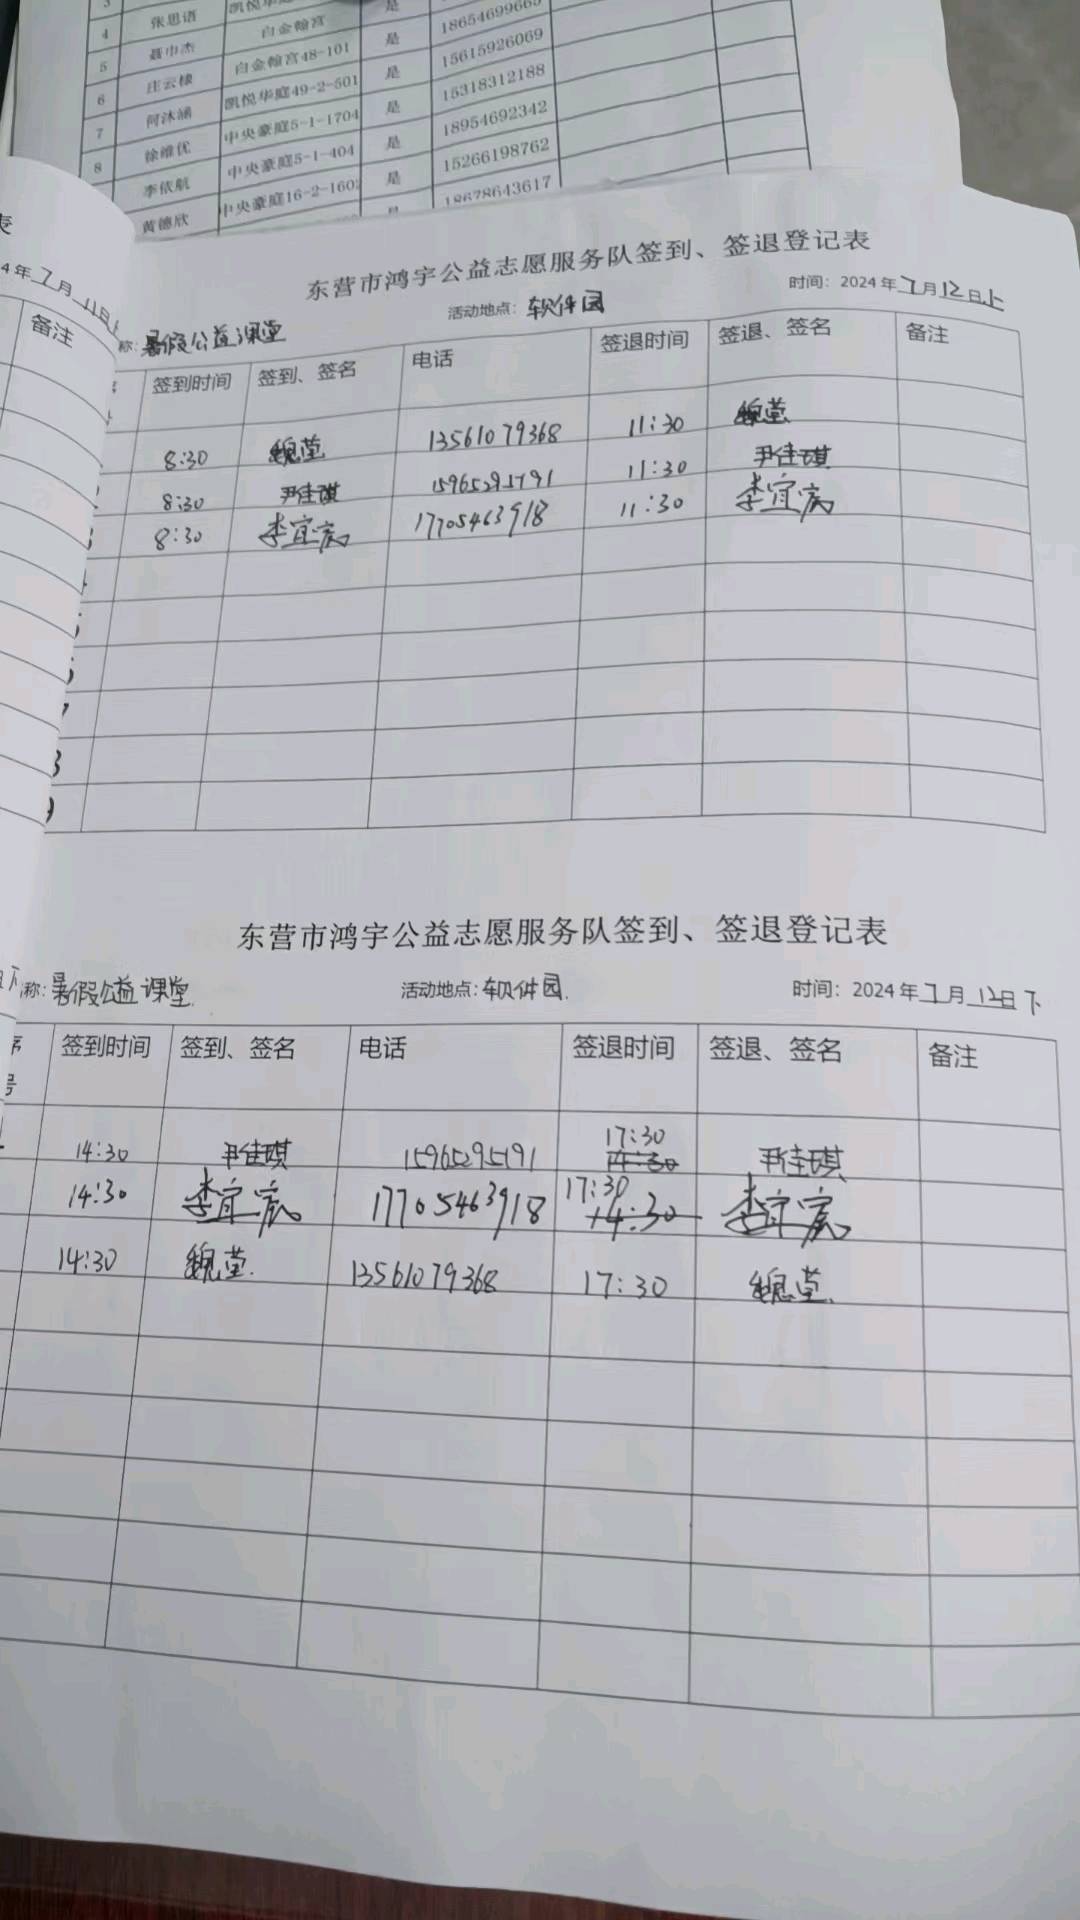 3
4 张思语 凯悦华庭 是 18654699665
5 聂巾杰 白金翰宫 是 15615926069
6 庄云棣 白金翰宫48-101 是 15318312188
7 何沐涵 凯悦华庭49-2-501 是 18954692342
8 徐维优 中央豪庭5-1-1704 是 15266198762
李依航 中央豪庭5-1-404 是 18678643617
黄德欣 中央豪庭16-2-1602
表
4年7月11日
备注
东营市鸿宇公益志愿服务队签到、签退登记表
称:暑假公益课堂 活动地点:软件园 时间:2024年7月12日上
签到时间 签到、签名 电话 签退时间 签退、签名 备注
8:30 魏莹 13561079368 11:30 魏莹
8:30 尹佳琪 15965295191 11:30 尹佳琪
8:30 李宜宸 17705463918 11:30 李宜宸
东营市鸿宇公益志愿服务队签到、签退登记表
称:暑假公益课堂. 活动地点:软件园. 时间:2024年7月12日下
序号 签到时间 签到、签名 电话 签退时间 签退、签名 备注
14:30 尹佳琪 15965295191 17:30 尹佳琪
14:30 李宜宸 17705463918 17:30 李宜宸
14:30 魏莹. 13561079368 17:30 魏莹.